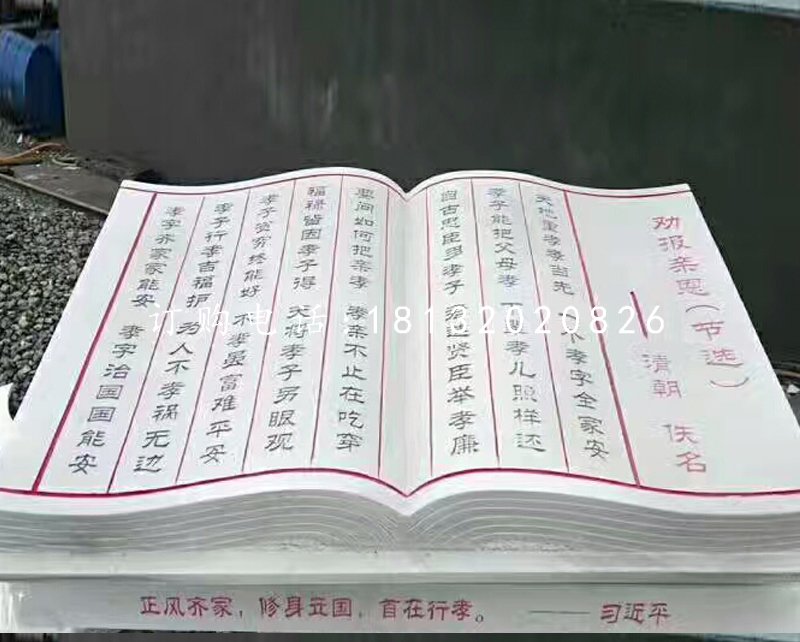 劝报亲恩(节选)
——清朝 佚名
天地重孝孝当先 一个孝字全家安
孝子能把父母孝 下孝儿照样还
自古忠臣多孝子 君选贤臣举孝廉
要问如何把亲孝 孝亲不止在吃穿
福禄皆因孝子得 天将孝子另眼观
孝子贫穷终能好 不孝虽富难平安
孝子行孝吉福护 为人不孝祸无边
孝字齐家家能安 孝字治国国能安
订购电话:
正风齐家，修身国，首在行孝。 ——习近平